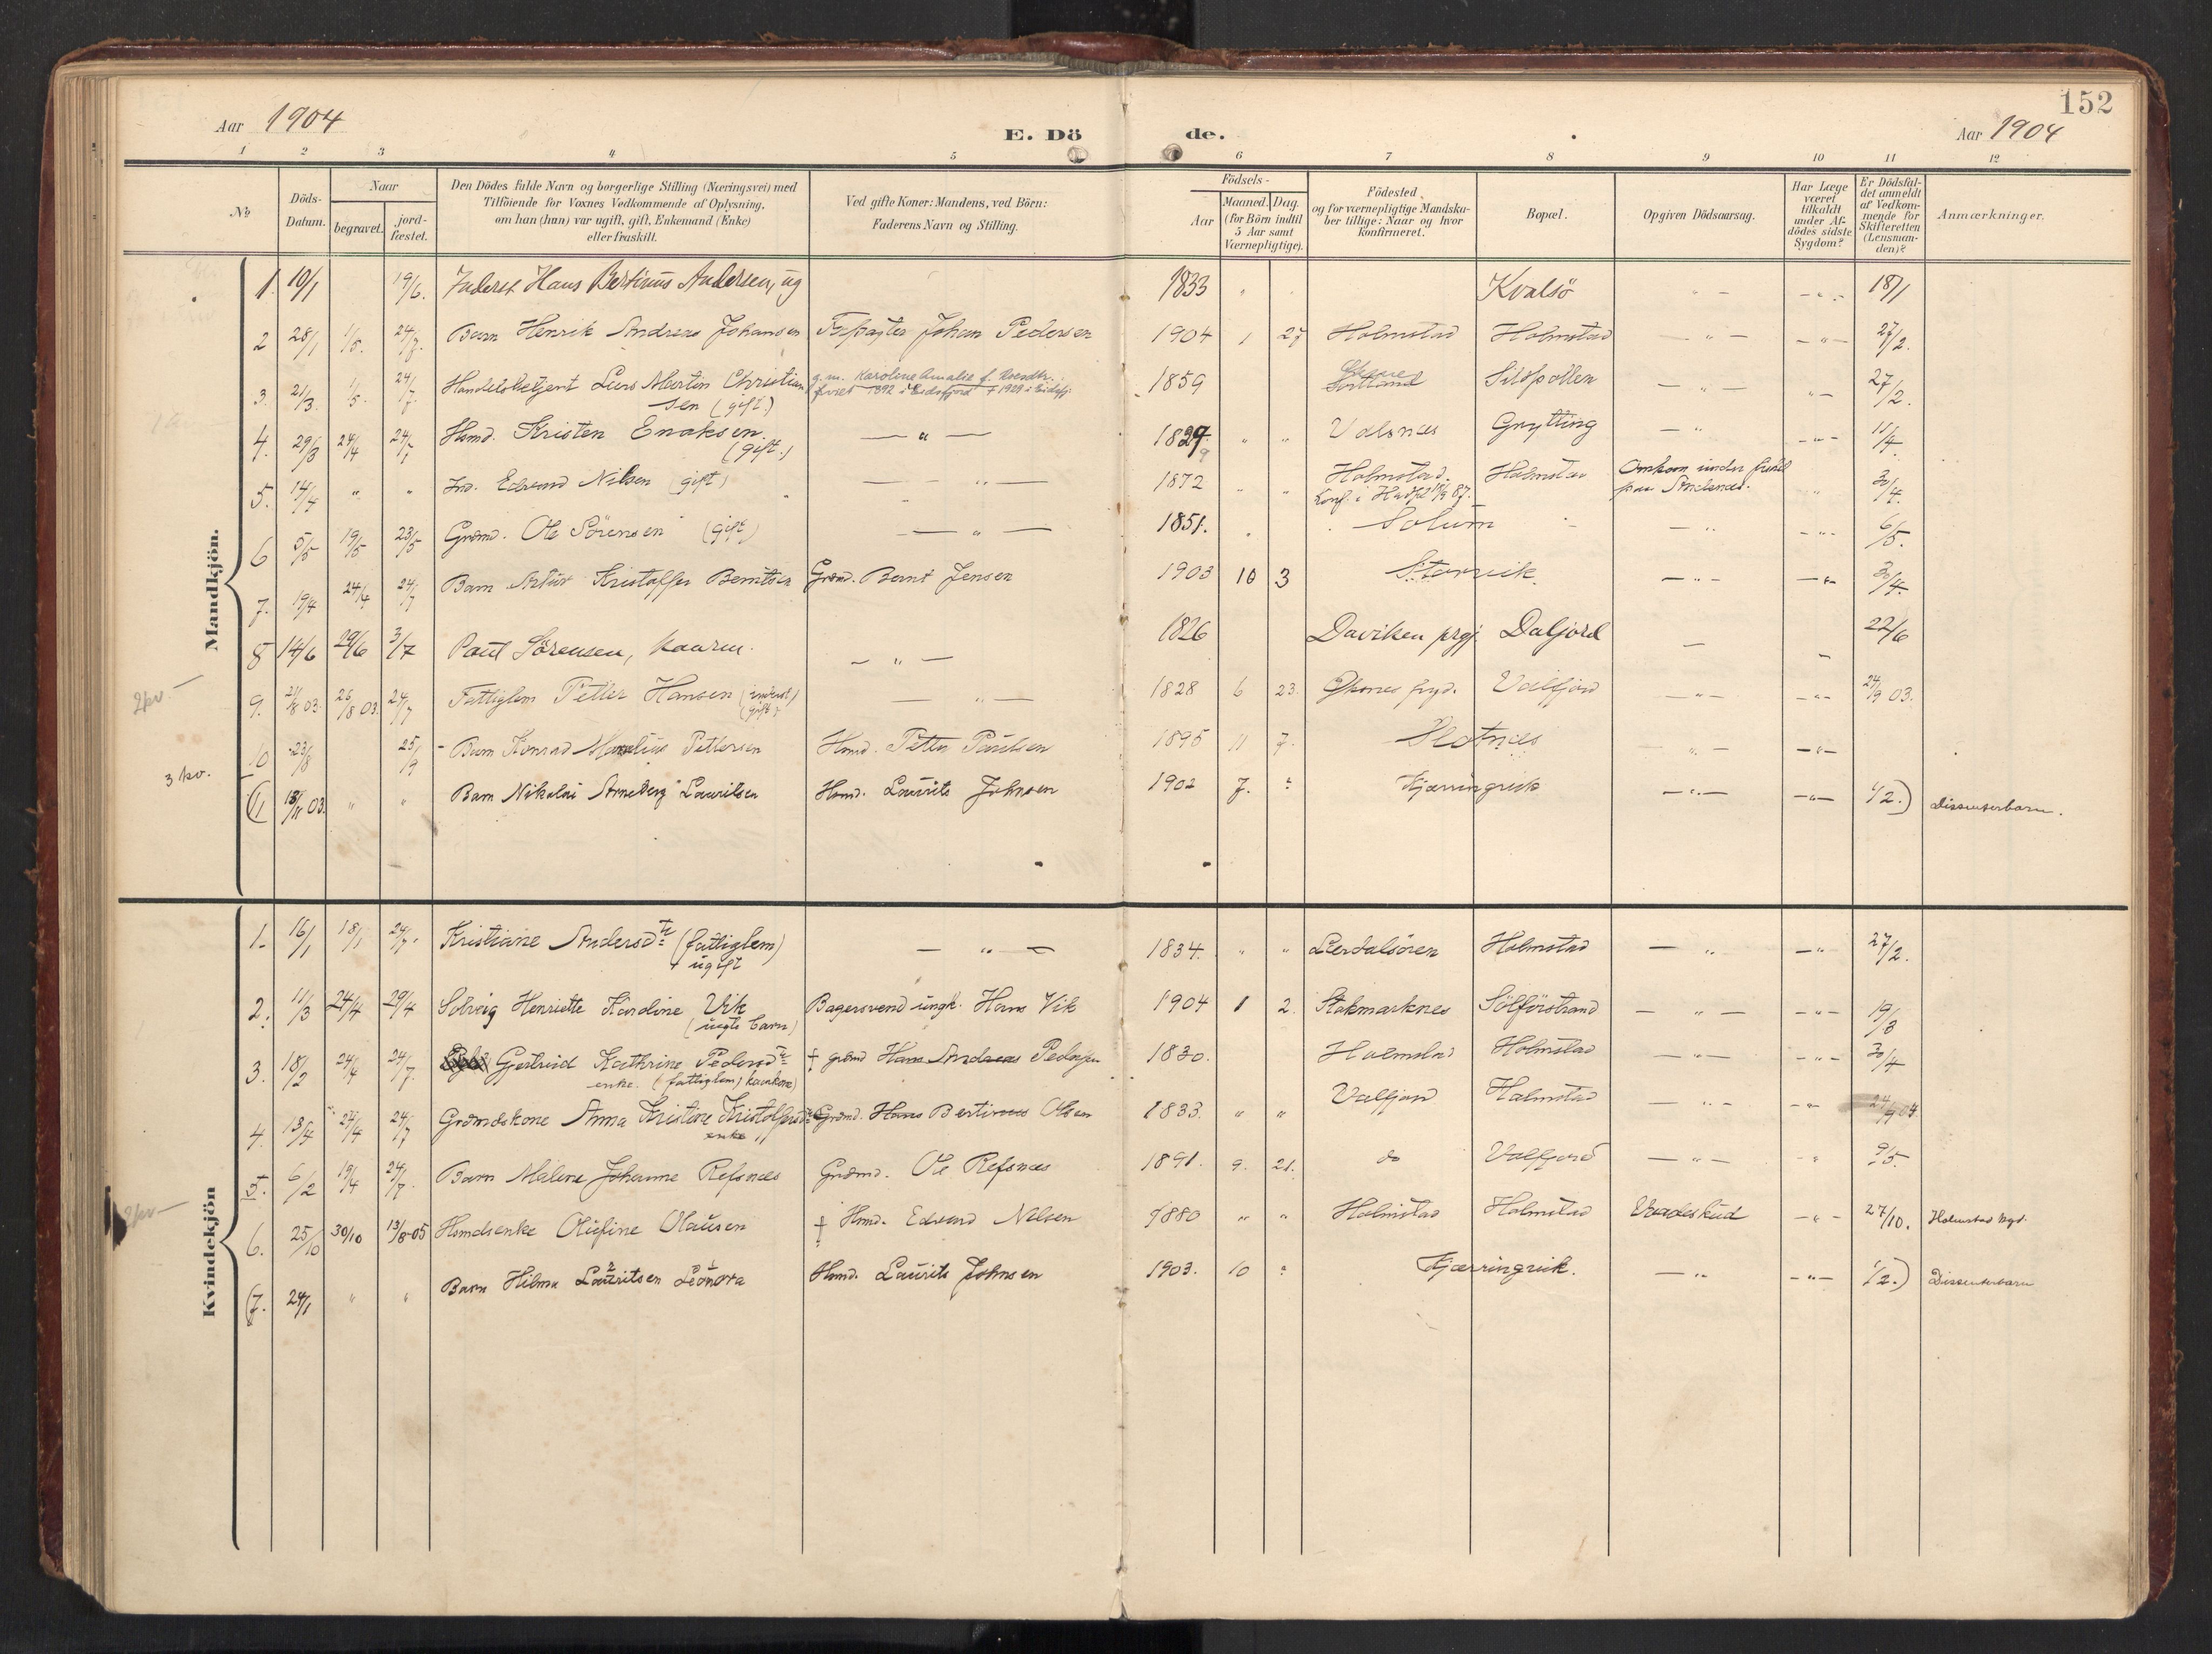 152
Aar 1904
E. Dö de.
Aar 1904
1 2 3 4 5 6 7 8 9 10 11 12
No
Döds-Datum.
Naar
begravet.
jord-fæstet.
Den Dödes fulde Navn og borgerlige Stilling (Næringsvei) med
Tilföiende for Voxnes Vedkommende af Oplysning,
om han (hun) var ugift, gift, Enkemand (Enke)
eller fraskilt.
Ved gifte Koner: Mandens, ved Börn:
Faderens Navn og Stilling.
Födsels-
Aar
Maaned. Dag.
(for Börn indtil
5 Aar samt
Værnepligtige).
Födested,
og for værnepligtige Mandska-
ber tillige: Naar og hvor
Konfirmeret.
Bopæl.
Opgiven Dödsaarsag.
Har Læge
været
tilkaldt
under Af-
dödes sidste
Sygdom?
Er Dödsfal-
det anmeldt
af Vedkom-
mende for
Skifteretten
(Lensman-
den)?
Anmærkninger.
Mandkjön.
1. 10/1 19/6. Inderst Hans Bertinus Andersen, ug 1833 " Kvalsö " — — " — 18/1
2 28/1 1/5. 24/7. Barn Henrik Andreas Johansen Johan Pedersen 1904 1 27 Holmstad Holmstad — " — — " — 27/2.
3. 21/3. 1/5. 24/7. Handelsbetjent Lars Martin Christian g. m. Karoline Amalie f.
sen (gift.) 1892 i Eidsfjord † 1929 i Eidsfj. 1859 Sortland Sildpollen — " — " — 27/2.
4. 29/3 24/4 24/7 Hsmd. Kristen Enoksen. — " — 1829 " " Valsnes Grytting — " — " — 11/4.
(gift.)
5. 14/4 " " Ind. Edvard Nilsen (gift) — " — 1872 " " Holmstad. Holmstad Omkom under fiske " 30/4.
Konf. i 87. paa Andenæs.
6 5/5 19/5 23/5 Grdmd. Ole Sörensen (gift) — " — 1851. " Solum — " — " — 6/5.
7. 19/4 24/4 24/7 Barn Artur Kristoffer Berntsen Grdmd. Bernt Jensen 1903 10 3 Storvik. — " — — " — 30/4.
8 14/6 29/6 3/7 Paul Sörensen, kaarm. — " — 1826 Daviken prgj. Daljord — — 22/6
9. 21/8 03. 25/8 03. 24/7 Fattiglem Petter Hansen (inderst) — " — 1828 6 23. Öksnes Valfjord — " — — " — 24/9 03.
(gift)
10 23/8 25/9 - Barn Konrad Pettersen Hsmd. Petter Paulsen 1895 11 7. Slotnes — " — — " —
(11 13/11 03. " " Barn Nikolai Arneberg Lauritsen Hsmd. Laurits Johnsen 1902 7. ? Kjærringvik — " — — " — 1/2.) Dissenterbarn.
2kv. —
3 kv.
Kvindekjön
1. 16/1 18/1 24/7. Kristiane Andersdtr (fattiglem) — " — 1834. " " Lerdalsören Holmstad — " — " 27/2.
ugift
2. 11/3 24/4 29/4 Solveig Henriette Karoline Vik Bagersvend ungk. Hans Vik 1904 1 2. Stokmarknes Sölförstrand — " — — " — 19/3
(uægte barn)
3. 18/2 24/4 24/7. Gjertrud Kathrine Pedersdtr † grdmd Hans Andreas Pedersen 1830. Holmstad Holmstad — " — — " — 30/4
enke. (fattiglem) kaarkone)
4. 13/4 24/4 24/7 Grdmdskone Anna Kristine Kristoffersdtr Grdmd. Hans Bertinus Olsen 1833. " " Valfjord Holmstad — " — — " 24/9 04
enke
5. 6/2 19/4 24/7. Barn Malene Johanne Refsnæs Grdmd. Ole Refsnæs 1891. 9. 21. do Valfjord — " — " 9/5.
6. 25/10 30/10 13/8-05 Hsmdsenke Olufine Olausen † Hsmd. Edvard Nilsen 1880 " " Holmstad Holmstad Vaadeskud — " — 27/10. Holmstad kgd.
(7. 24/1 " " Barn Hilma Lauritsen Leonora Hsmd. Laurits Johnsen 1903. 10 ? Kjærringvik. — " — " — 1/2.) Dissenterbarn
2kv —